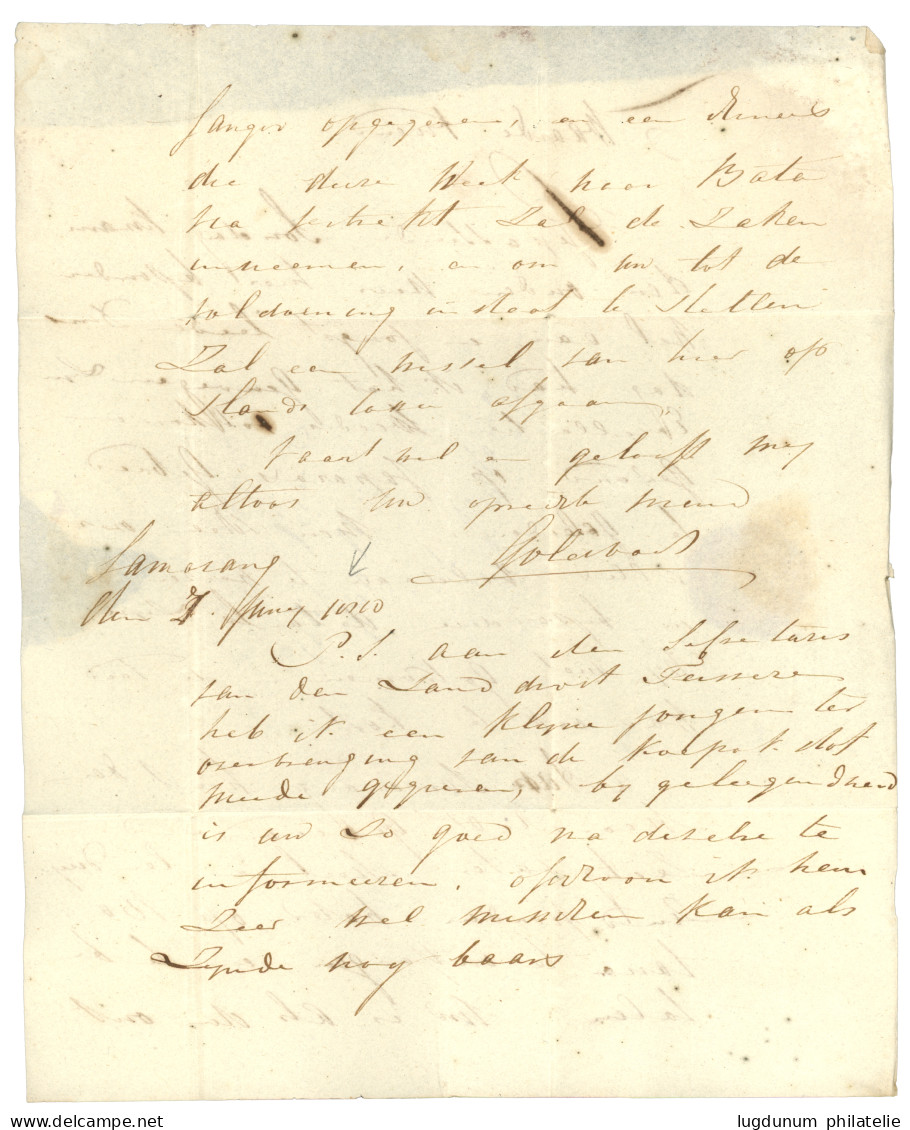 opgegeven, en een
die deese Week naar Bata
via vertrekt Zal de Zaken
inneemen, en om uw tot de
voldoening in staat te stellen
Zal een wissel van hier op
Slands afgaan
Vaart wel en geloofft my
altoos uw opregte vriend
Samarang
den 7 Juny 1810
P.S. aan den Sekretaris
van den Land drost
heb ik een klyne jongen ter
overbrenging van de
meede gegeven, by geleegendheid
is uw zo goed na deselve te
informeeren, ofschoon ik hem
Zeer wel missen kan als
Zynde nog baars
lugdunum philatelie